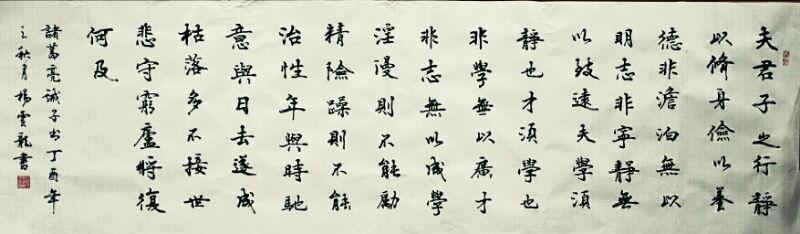 夫君子之行靜
以脩身儉以養
德非澹泊無以
明志非寧靜無
以致遠夫學須
靜也才須學也
非學無以廣才
非志無以成學
淫漫則不能勵
精險躁則不能
治性年與時馳
意與日去遂成
枯落多不接世
悲守窮廬將復
何及
諸葛亮誡子书丁酉年
之秋月楊雲龍書